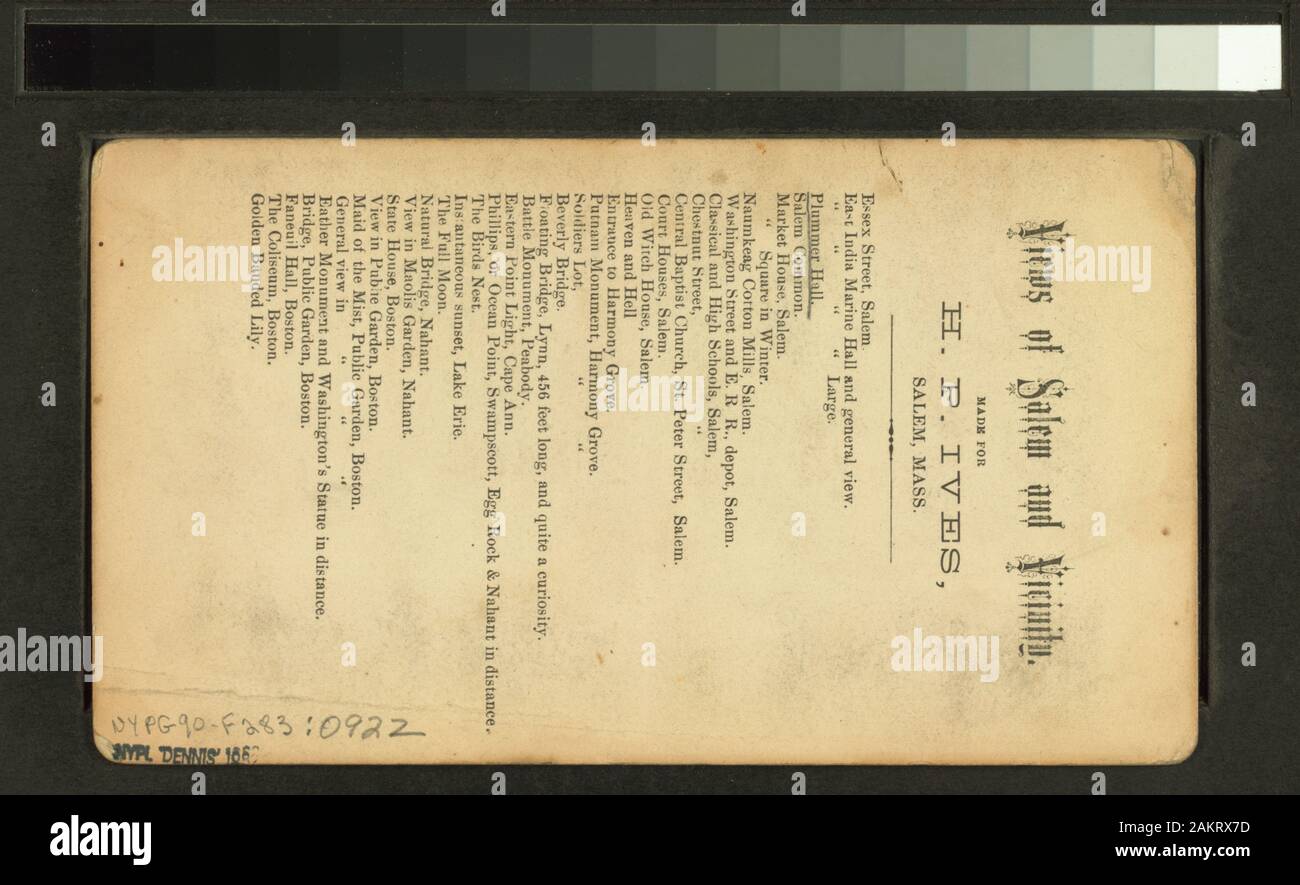 Views of Salem and Vicinity.
MADE FOR
H. P. IVES,
SALEM, MASS.
Essex Street, Salem.
East India Marine Hall and general view.
" " " " Large.
Plummer Hall.
Salem Common.
Market House, Salem.
" Square in Winter.
Naumkeag Cotton Mills, Salem.
Washington Street and E. R R., depot, Salem.
Classical and High Schools, Salem,
Chestnut Street, "
Central Baptist Church, St. Peter Street, Salem.
Court Houses, Salem.
Old Witch House, Salem.
Heaven and Hell
Entrance to Harmony Grove.
Putnam Monument, Harmony Grove.
Soldiers Lot, " "
Beverly Bridge.
Floating Bridge, Lynn, 456 feet long, and quite a curiosity.
Battle Monument, Peabody.
Eastern Point Light, Cape Ann.
Phillips, or Ocean Point, Swampscott, Egg Rock & Nahant in distance.
The Birds Nest.
Instantaneous sunset, Lake Erie.
The Full Moon.
Natural Bridge, Nahant.
View in Maolis Garden, Nahant.
State House, Boston.
View in Public Garden, Boston.
Maid of the Mist, Public Garden, Boston.
General view in " " "
Eather Monument and Washington's Statue in distance.
Bridge, Public Garden, Boston.
Faneuil Hall, Boston.
The Coliseum, Boston.
Golden Banded Lily.
NYPG90-F283:0922
NYPL 'DENNIS'
alamy
Image ID: 2AKRX7D
www.alamy.com